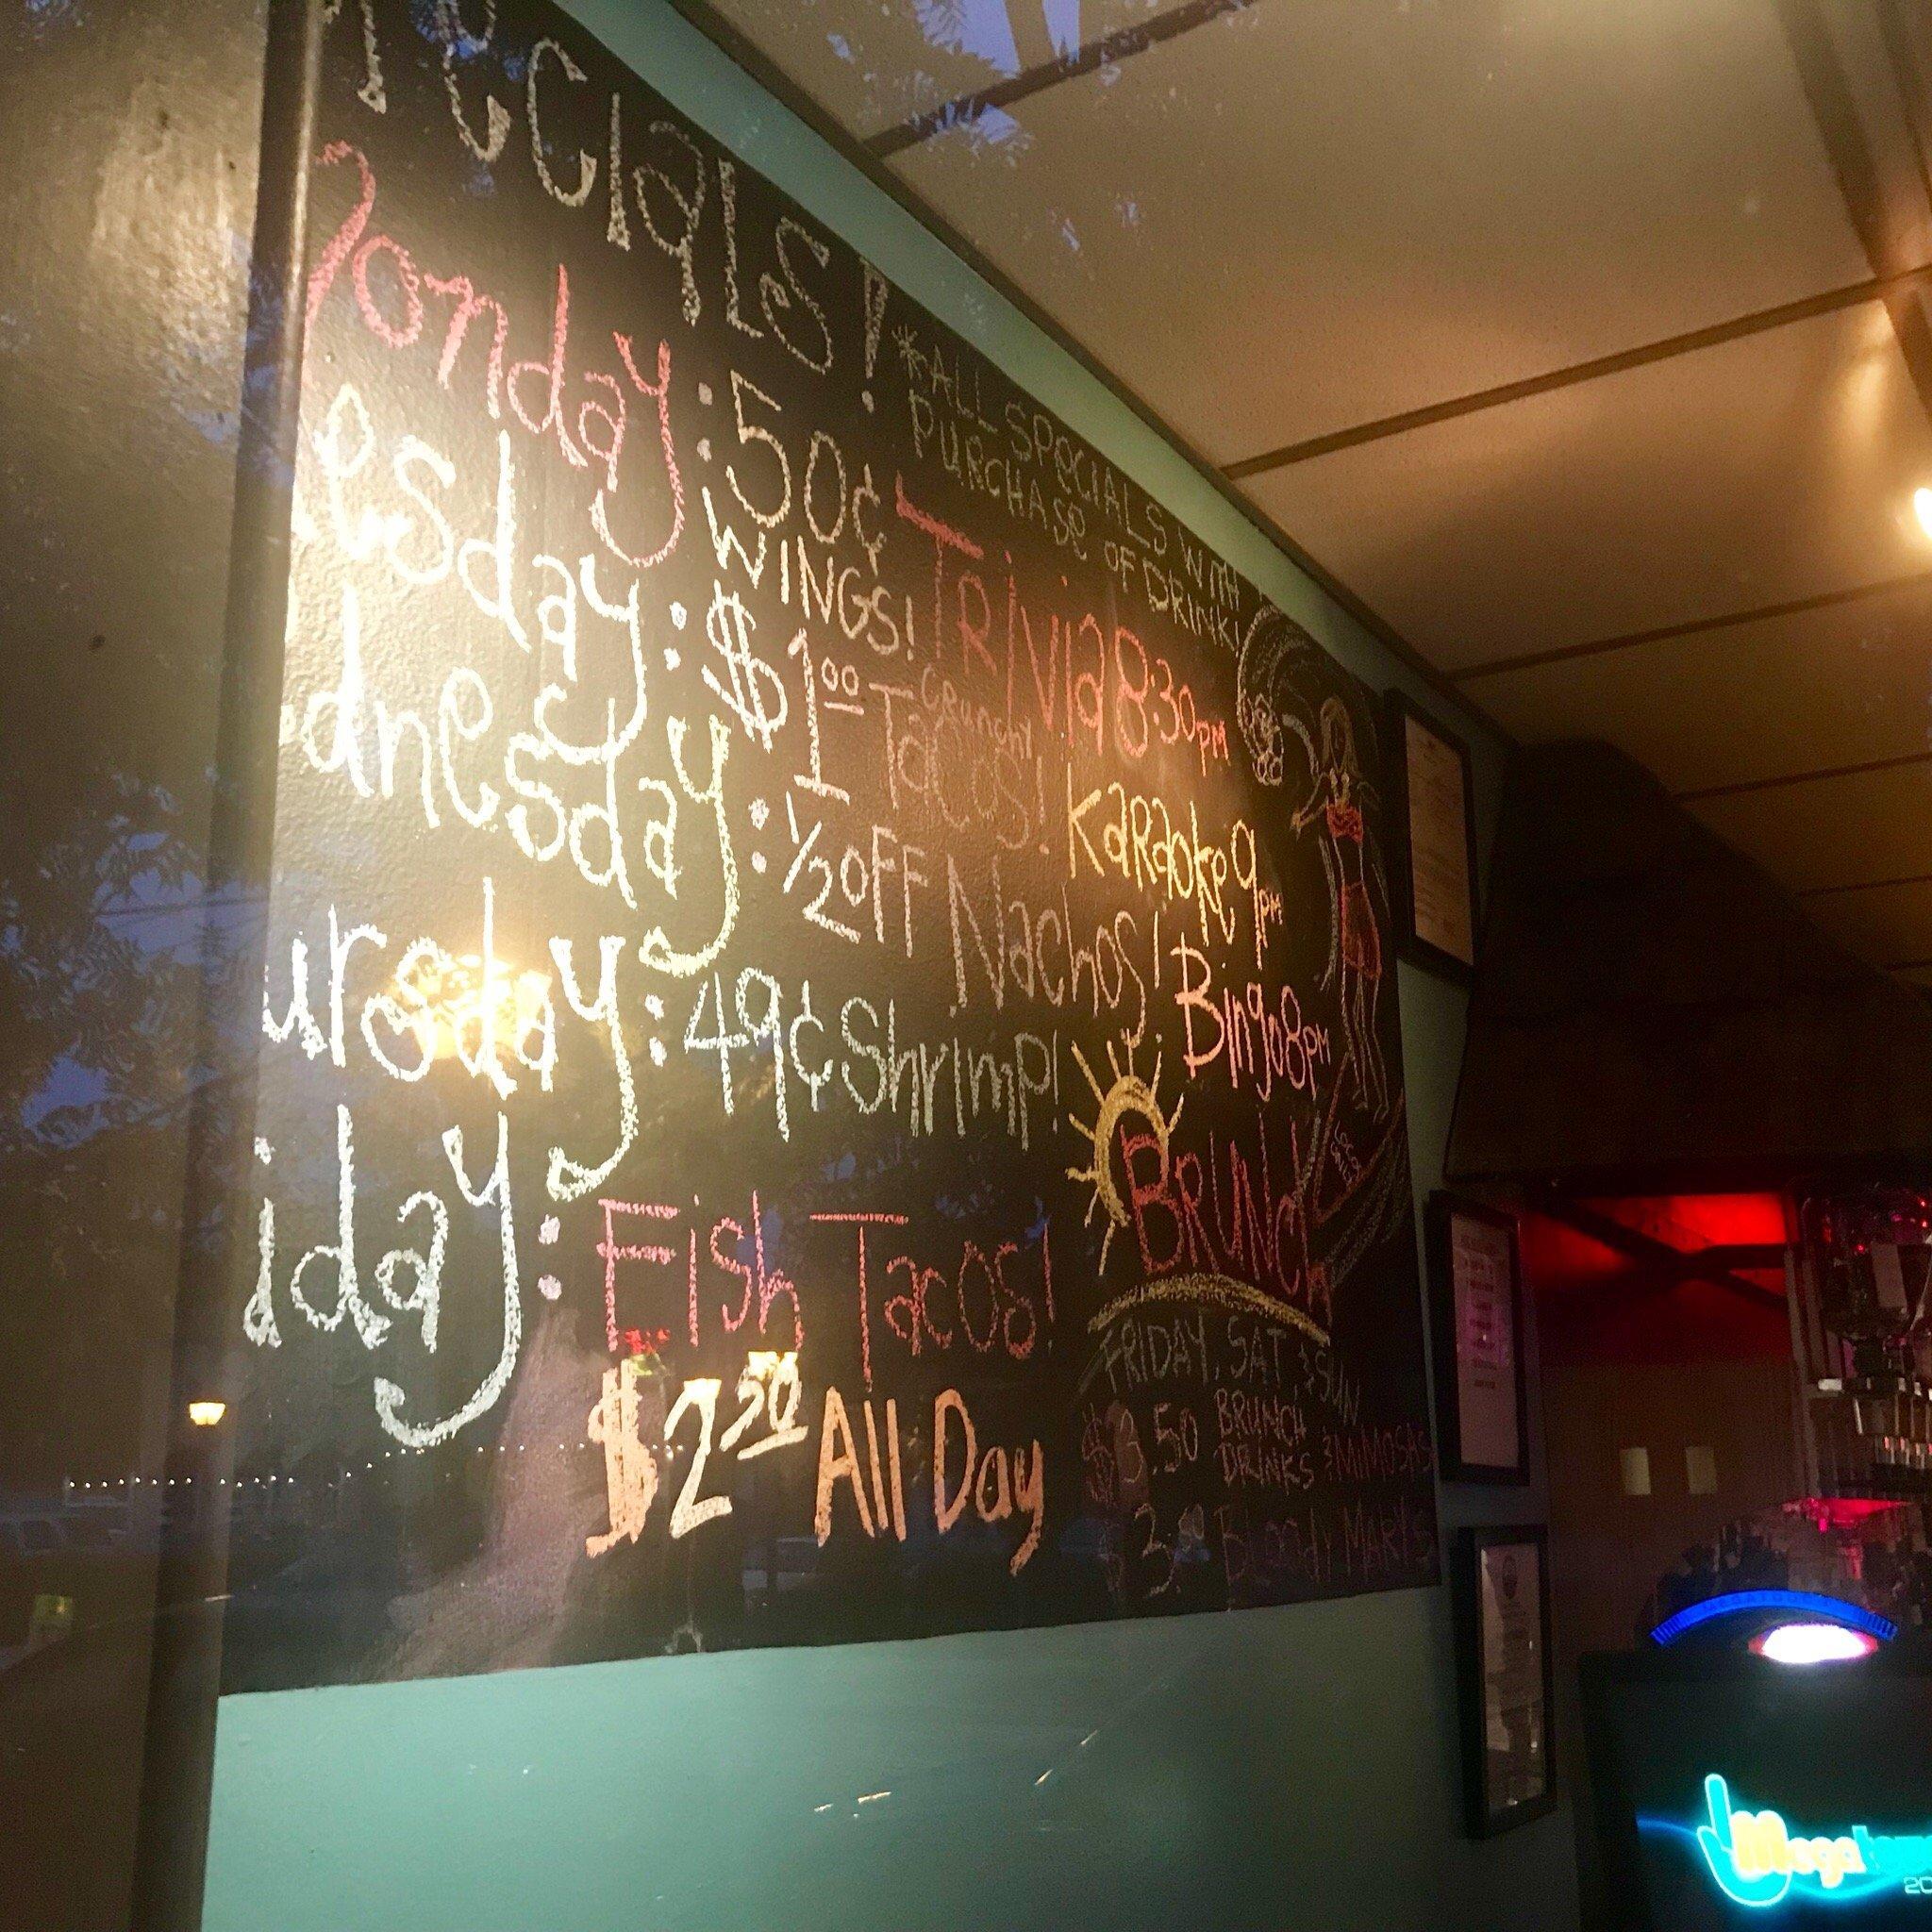 PECIALS!
*ALL SPECIALS WITH
PURCHASE OF DRINK!
Monday: 50¢
WINGS!
Trivia 8:30PM
esday: $1.00 Crunchy
Tacos!
Karaoke 9PM
dnesday: 1/2 OFF Nachos!
Bingo 8PM
ursday: 49¢ Shrimp!
iday: Fish Tacos!
$2.50 All Day
BRUNCH
FRIDAY, SAT & SUN
$3.50 BRUNCH
DRINKS & MIMOSAS
BLOODY MARYS
Mega